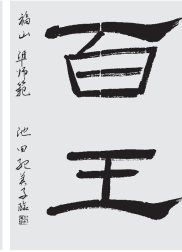 百王
福山 準師範 池田紀美子臨